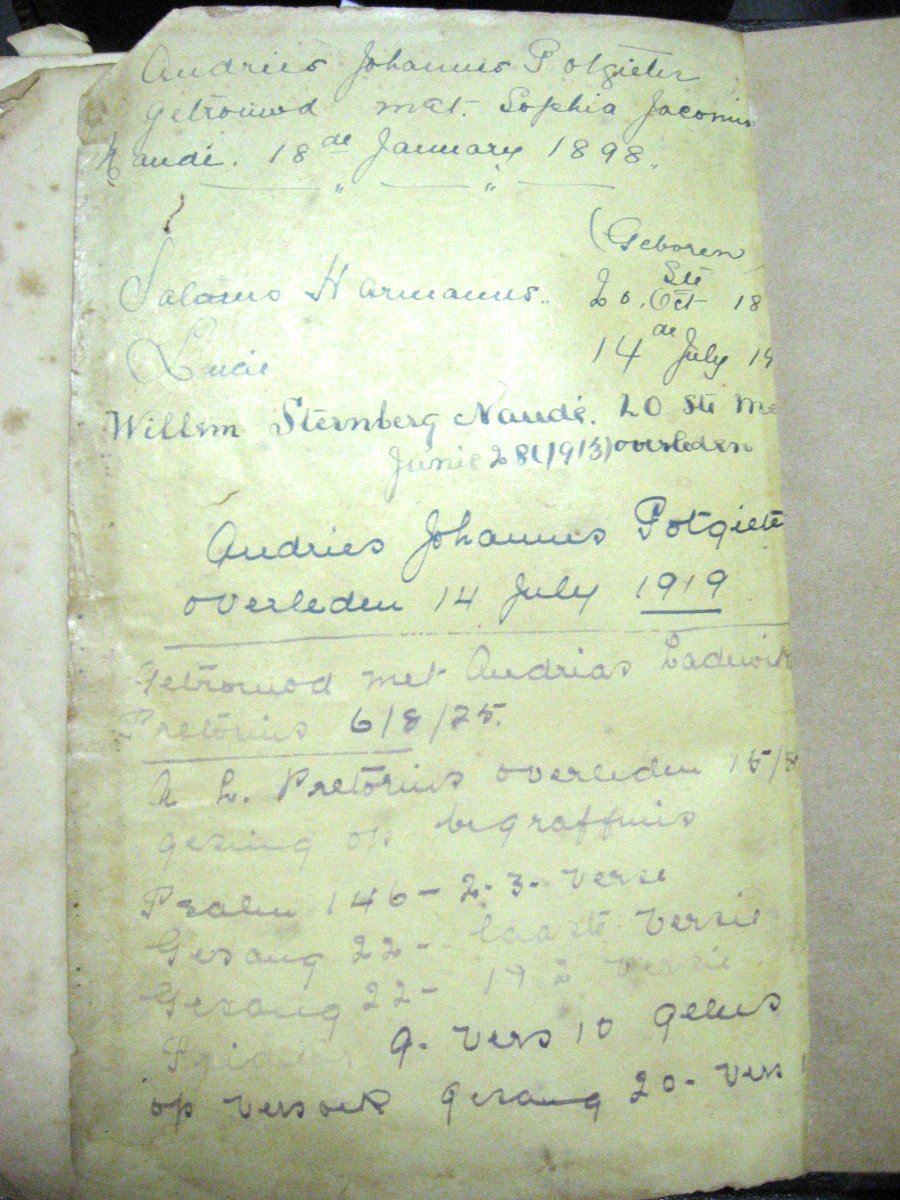 Andries Johannes Potgieter
getrouwd met. Sophia Jacomin
Naudé. 18 de January 1898.
(Geboren
Salamo Harmanus.. 20. Ste Oct 18
Lucie 14 de July 19
Willem Sternberg Naudé. 20 Ste Me
Junie 28 (1913) overleden
Andries Johannes Potgiete
overleden 14 July 1919
Getrouwd met Andrias Ladwick
Pretorius 6/8/25.
A L. Pretorius overleden 15/8
gesing op begraffnis
Psalm 146- 2- 3- verse
Gesang 22- laaste versie
Gesang 22- 1 2 versie
9- vers 10 gelees
op versoek gesang 20- vers